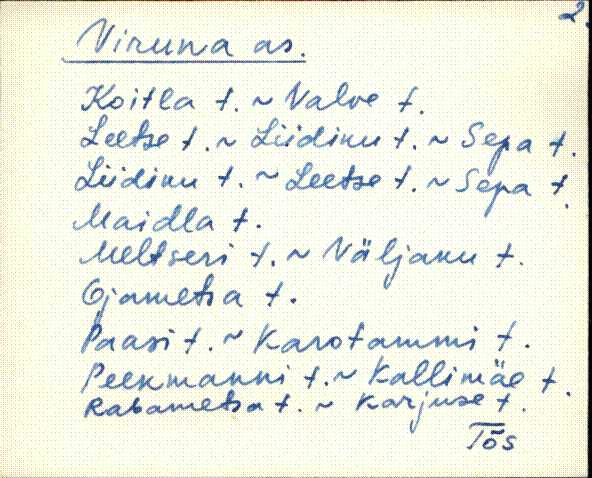 2.
Viruna as.
Koitla t. ~ Valve t.
Leetse t. ~ Liidiku t. ~ Sepa t.
Liidiku t. ~ Leetse t. ~ Sepa t.
Maidla t.
Meltseri t. ~ Näljaku t.
Ojametsa t.
Paasi t. ~ Karotammi t.
Peekmanni t. ~ Kallimäe t.
Rabametsa t. ~ Karjuse t.
Tõs